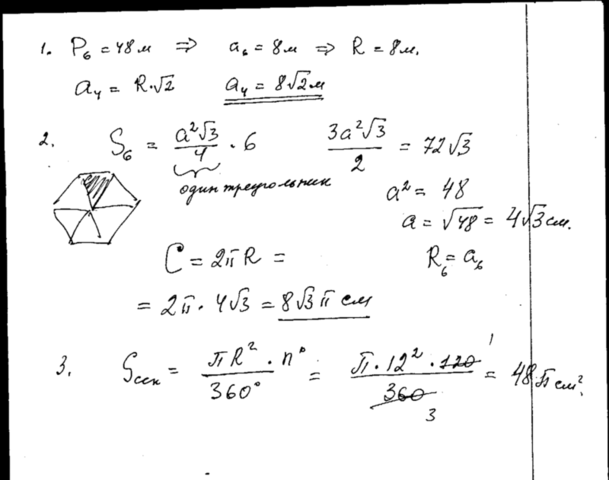 1. P₆ = 48м ⇒ a₆ = 8м ⇒ R = 8м.
a₄ = R·√2 a₄ = 8√2м
2. S₆ = a²√3/4 · 6 3a²√3/2 = 72√3
один треугольник a² = 48
a = √48 = 4√3 см.
C = 2πR = R₆ = a₆
= 2π · 4√3 = 8√3 π см
3. Sсек = πR² · n°/360° = π · 12² · 120/360 = 48π см².
1
3